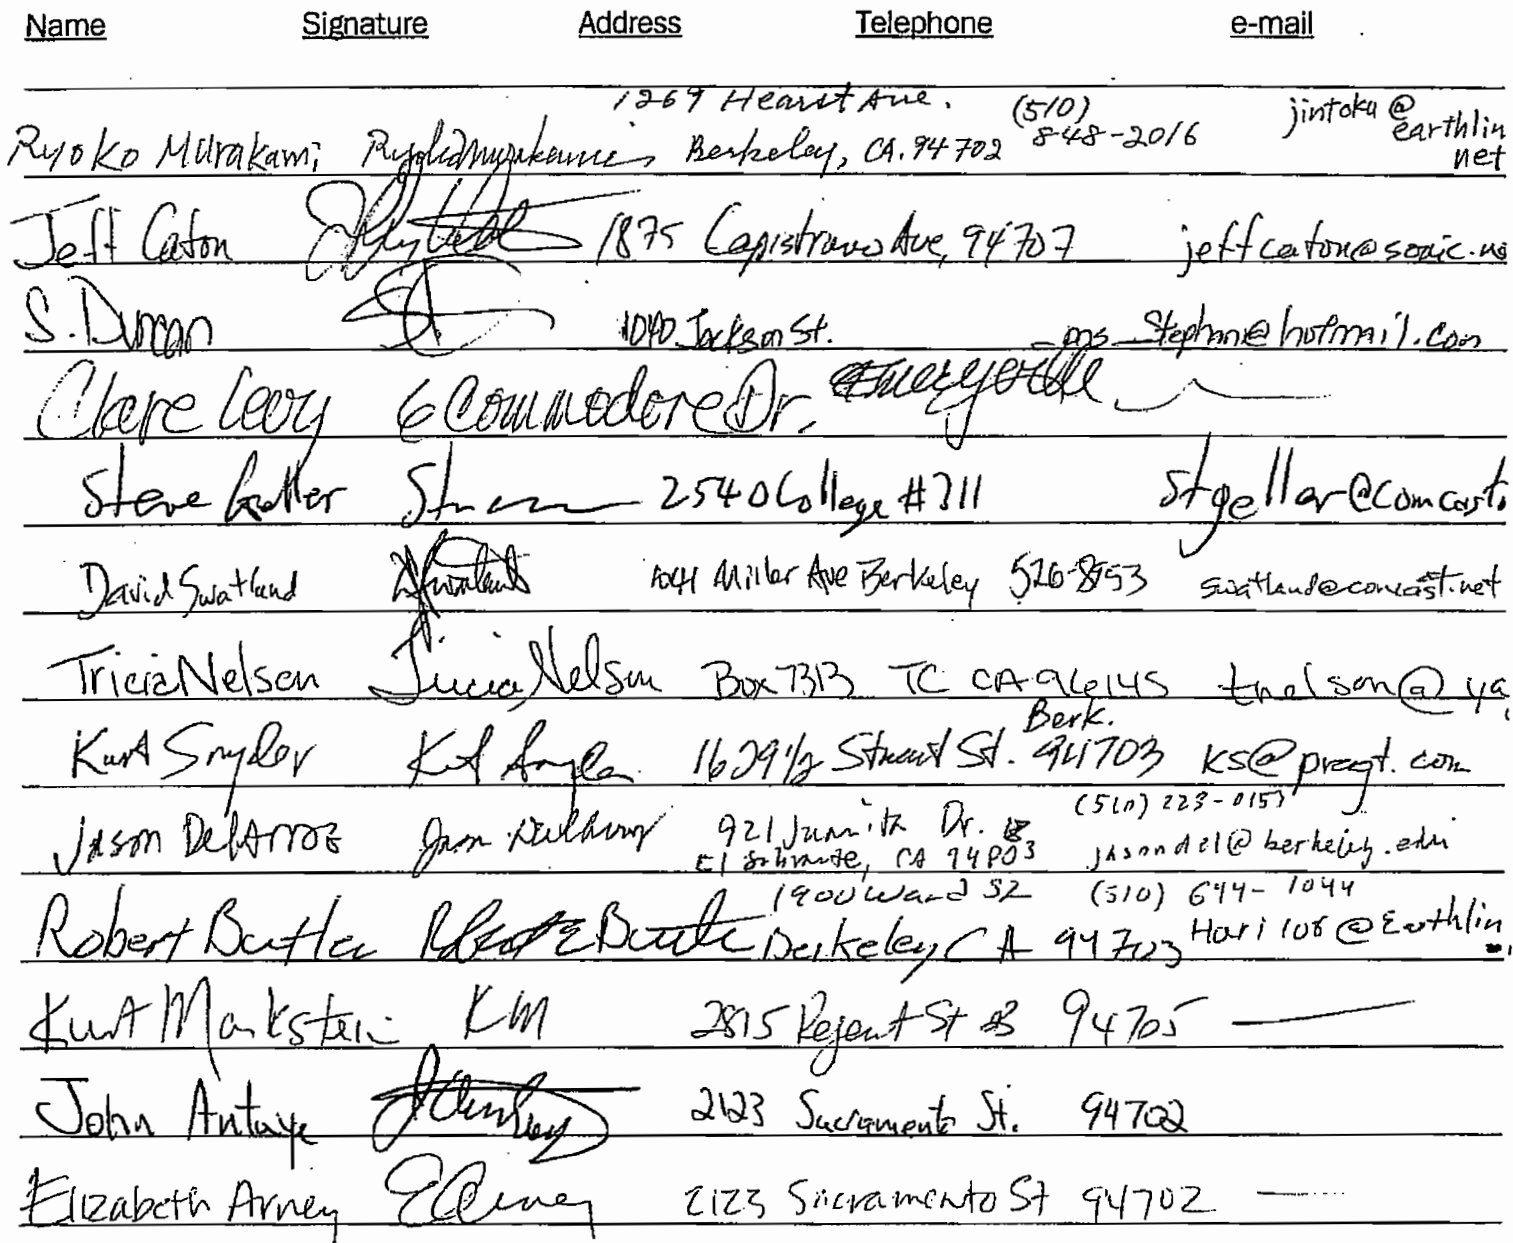 Name Signature Address Telephone e-mail
1269 Hearst Ave. (510) jintoku@
Ryoko Murakami Ryoko Murakami Berkeley, CA. 94702 848-2016 earthlin
net
Jeff Caton 1875 Capistrano Ave, 94707 jeffcaton@sonic.ne
S. Duncan 1040 Jackson St. ms_Stephne@hotmail.com
Clare Levy 6 Commodore Dr. Emeryville
Steve Geller 2540 College #311 stgeller@comcast.
David Swatland 1041 Miller Ave Berkeley 526-8953 swatland@comcast.net
Tricia Nelson Tricia Nelson Box 7313 TC CA 96145 tnelson@ya
Berk.
Kurt Snyder Kurt Snyder 1629 1/2 Stuart St. 94703 ks@pragt.com
(510) 223-0153
Jason DelArroz 921 Juanita Dr.
El Sobrante, CA 94803 jasondel@berkeley.edu
1900 Ward St (510) 644-1044
Robert Butler Robert Butler Berkeley, CA 94703 Hari108@Earthlin
Kurt Markstein KM 2815 Regent St #3 94705
John Antaye 2123 Sacramento St. 94702
Elizabeth Arney E Arney 2123 Sacramento St 94702